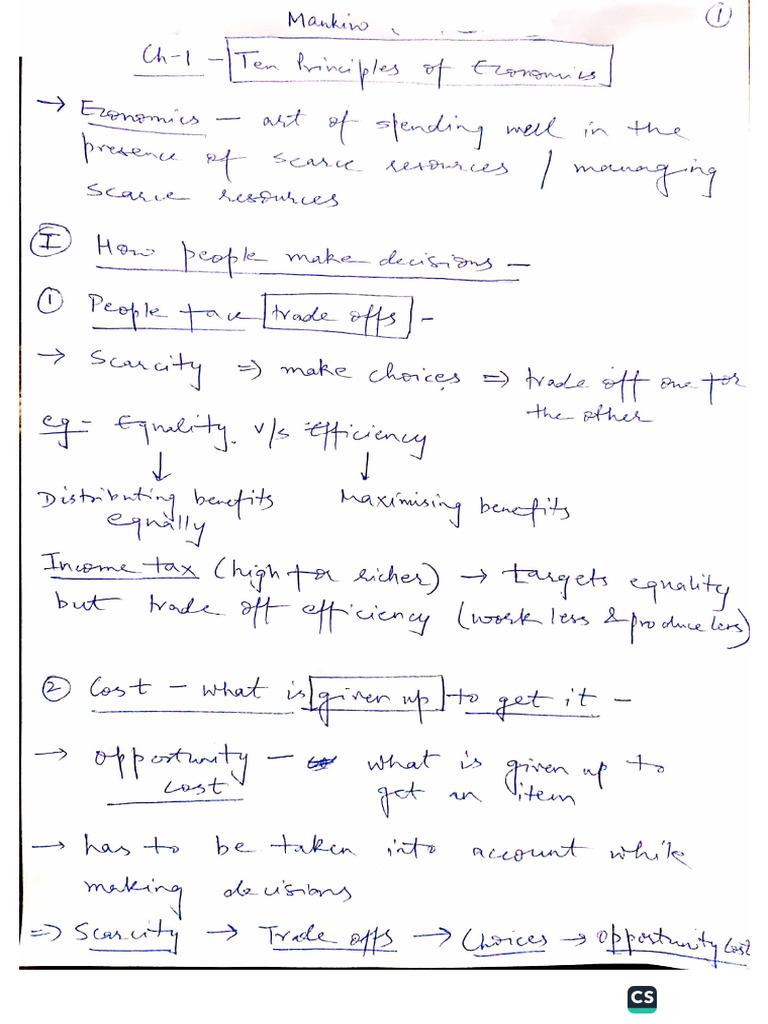 Mankiw
①
Ch-1 - Ten Principles of Economics
→ Economics - art of spending well in the
presence of scarce resources / managing
scarce resources
Ⓘ How people make decisions -
① People face trade offs -
→ Scarcity ⇒ make choices ⇒ trade off one for
the other
eg - Equality v/s Efficiency
↓ ↓
Distributing benefits Maximising benefits
equally
Income tax (high for richer) → targets equality
but trade off efficiency (work less & produce less)
② Cost - what is given up to get it -
→ opportunity - what is given up to
cost get an item
→ has to be taken into account while
making decisions
⇒ Scarcity → Trade offs → Choices → opportunity cost
CS